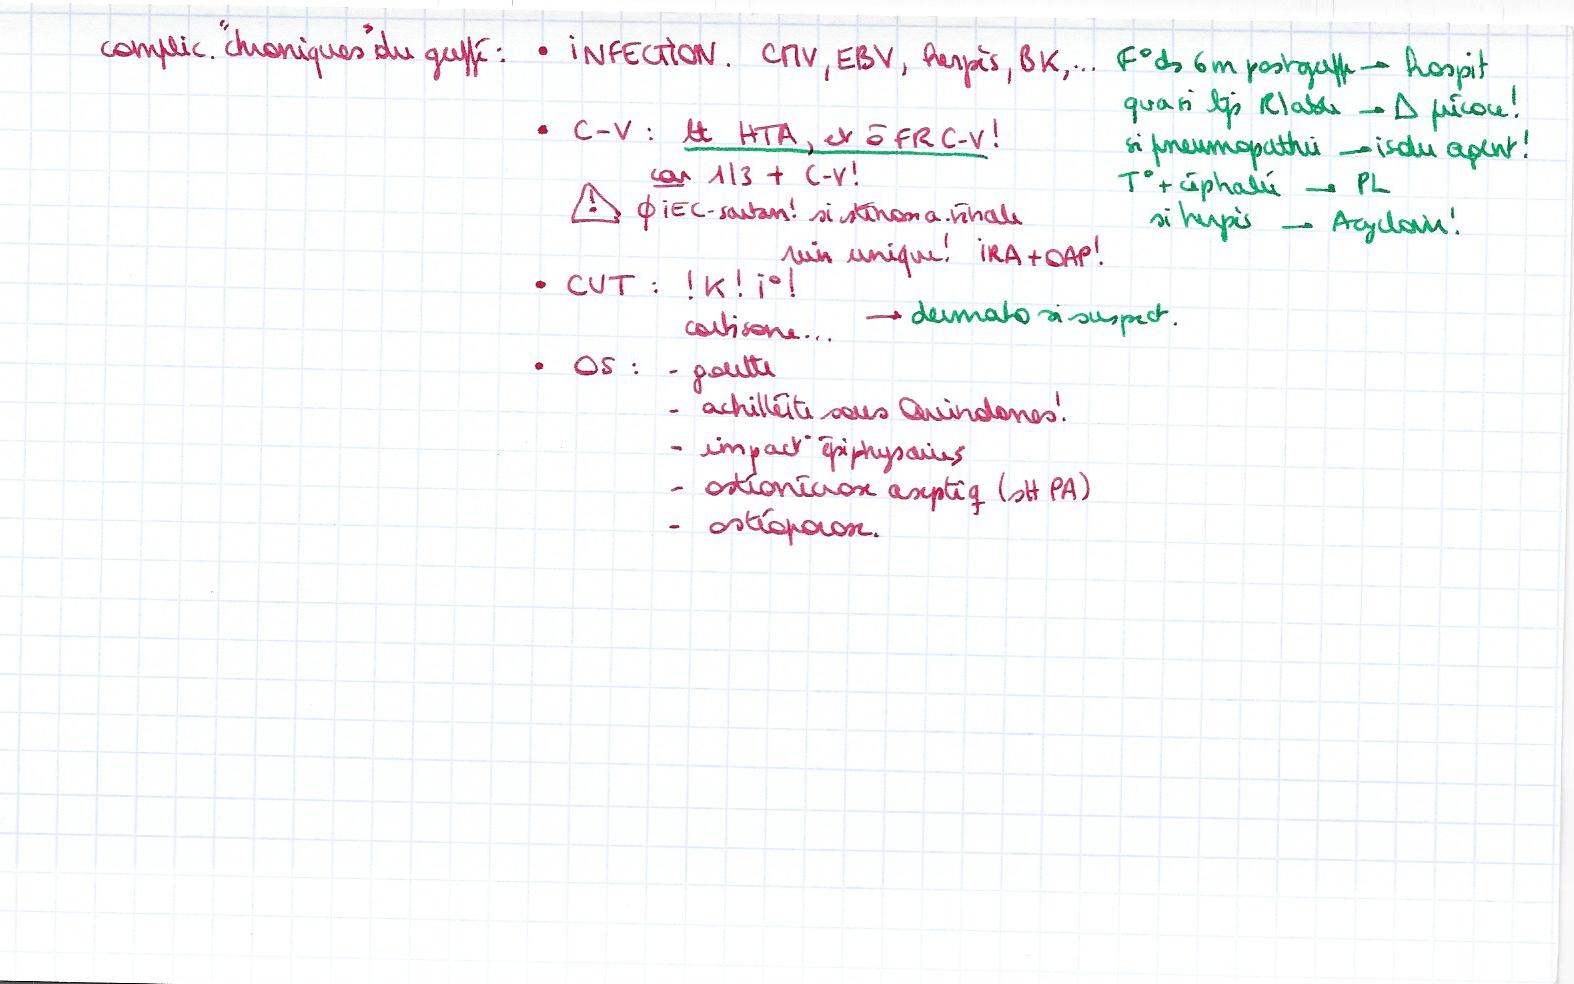 complic. "chroniques" du greffé : • INFECTION. CMV, EBV, herpès, BK, ...
F° ds 6 m postgreffe → hospit
quasi tjs tttable → Δ précoce!
si pneumopathie → isoler agent!
T° + céphalée → PL
si herpès → Acyclovir!
• C-V : ttt HTA, et ō FR C-V!
car 1/3 + C-V!
⚠ ϕ iEC-sartan! si sténose a. rénale
rein unique! iRA + OAP!
• CUT : !K! i°!
cortisone... → dermato si suspect.
• OS : - goutte
- achilléite sous Quinolones!
- impact° épiphysaires
- ostéonécrose aseptiq (stt PA)
- ostéoporose.